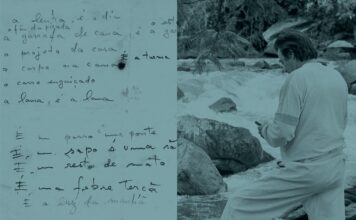 a lenha, é o dia
o fim da picada
a garrafa de cana, é a
o projeto da casa
o corpo na cama É a turma
o carro enguiçado
a lama, é a lama
É um passo uma ponte
É, um sapo é uma rã
É, um resto de mato
É, uma febre terçã
É a luz da manhã